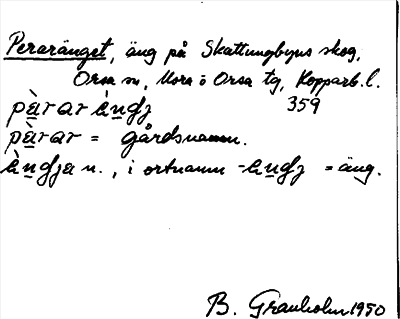 Peraränget, äng på Skattungbyns skog,
Orsa sn, Mora o Orsa tg, Kopparb. l.
pàrar àndʒ 359
pàrar = gårdsnamn.
àndʒa n., i ortnamn -andʒ = äng.
B. Granholm 1950